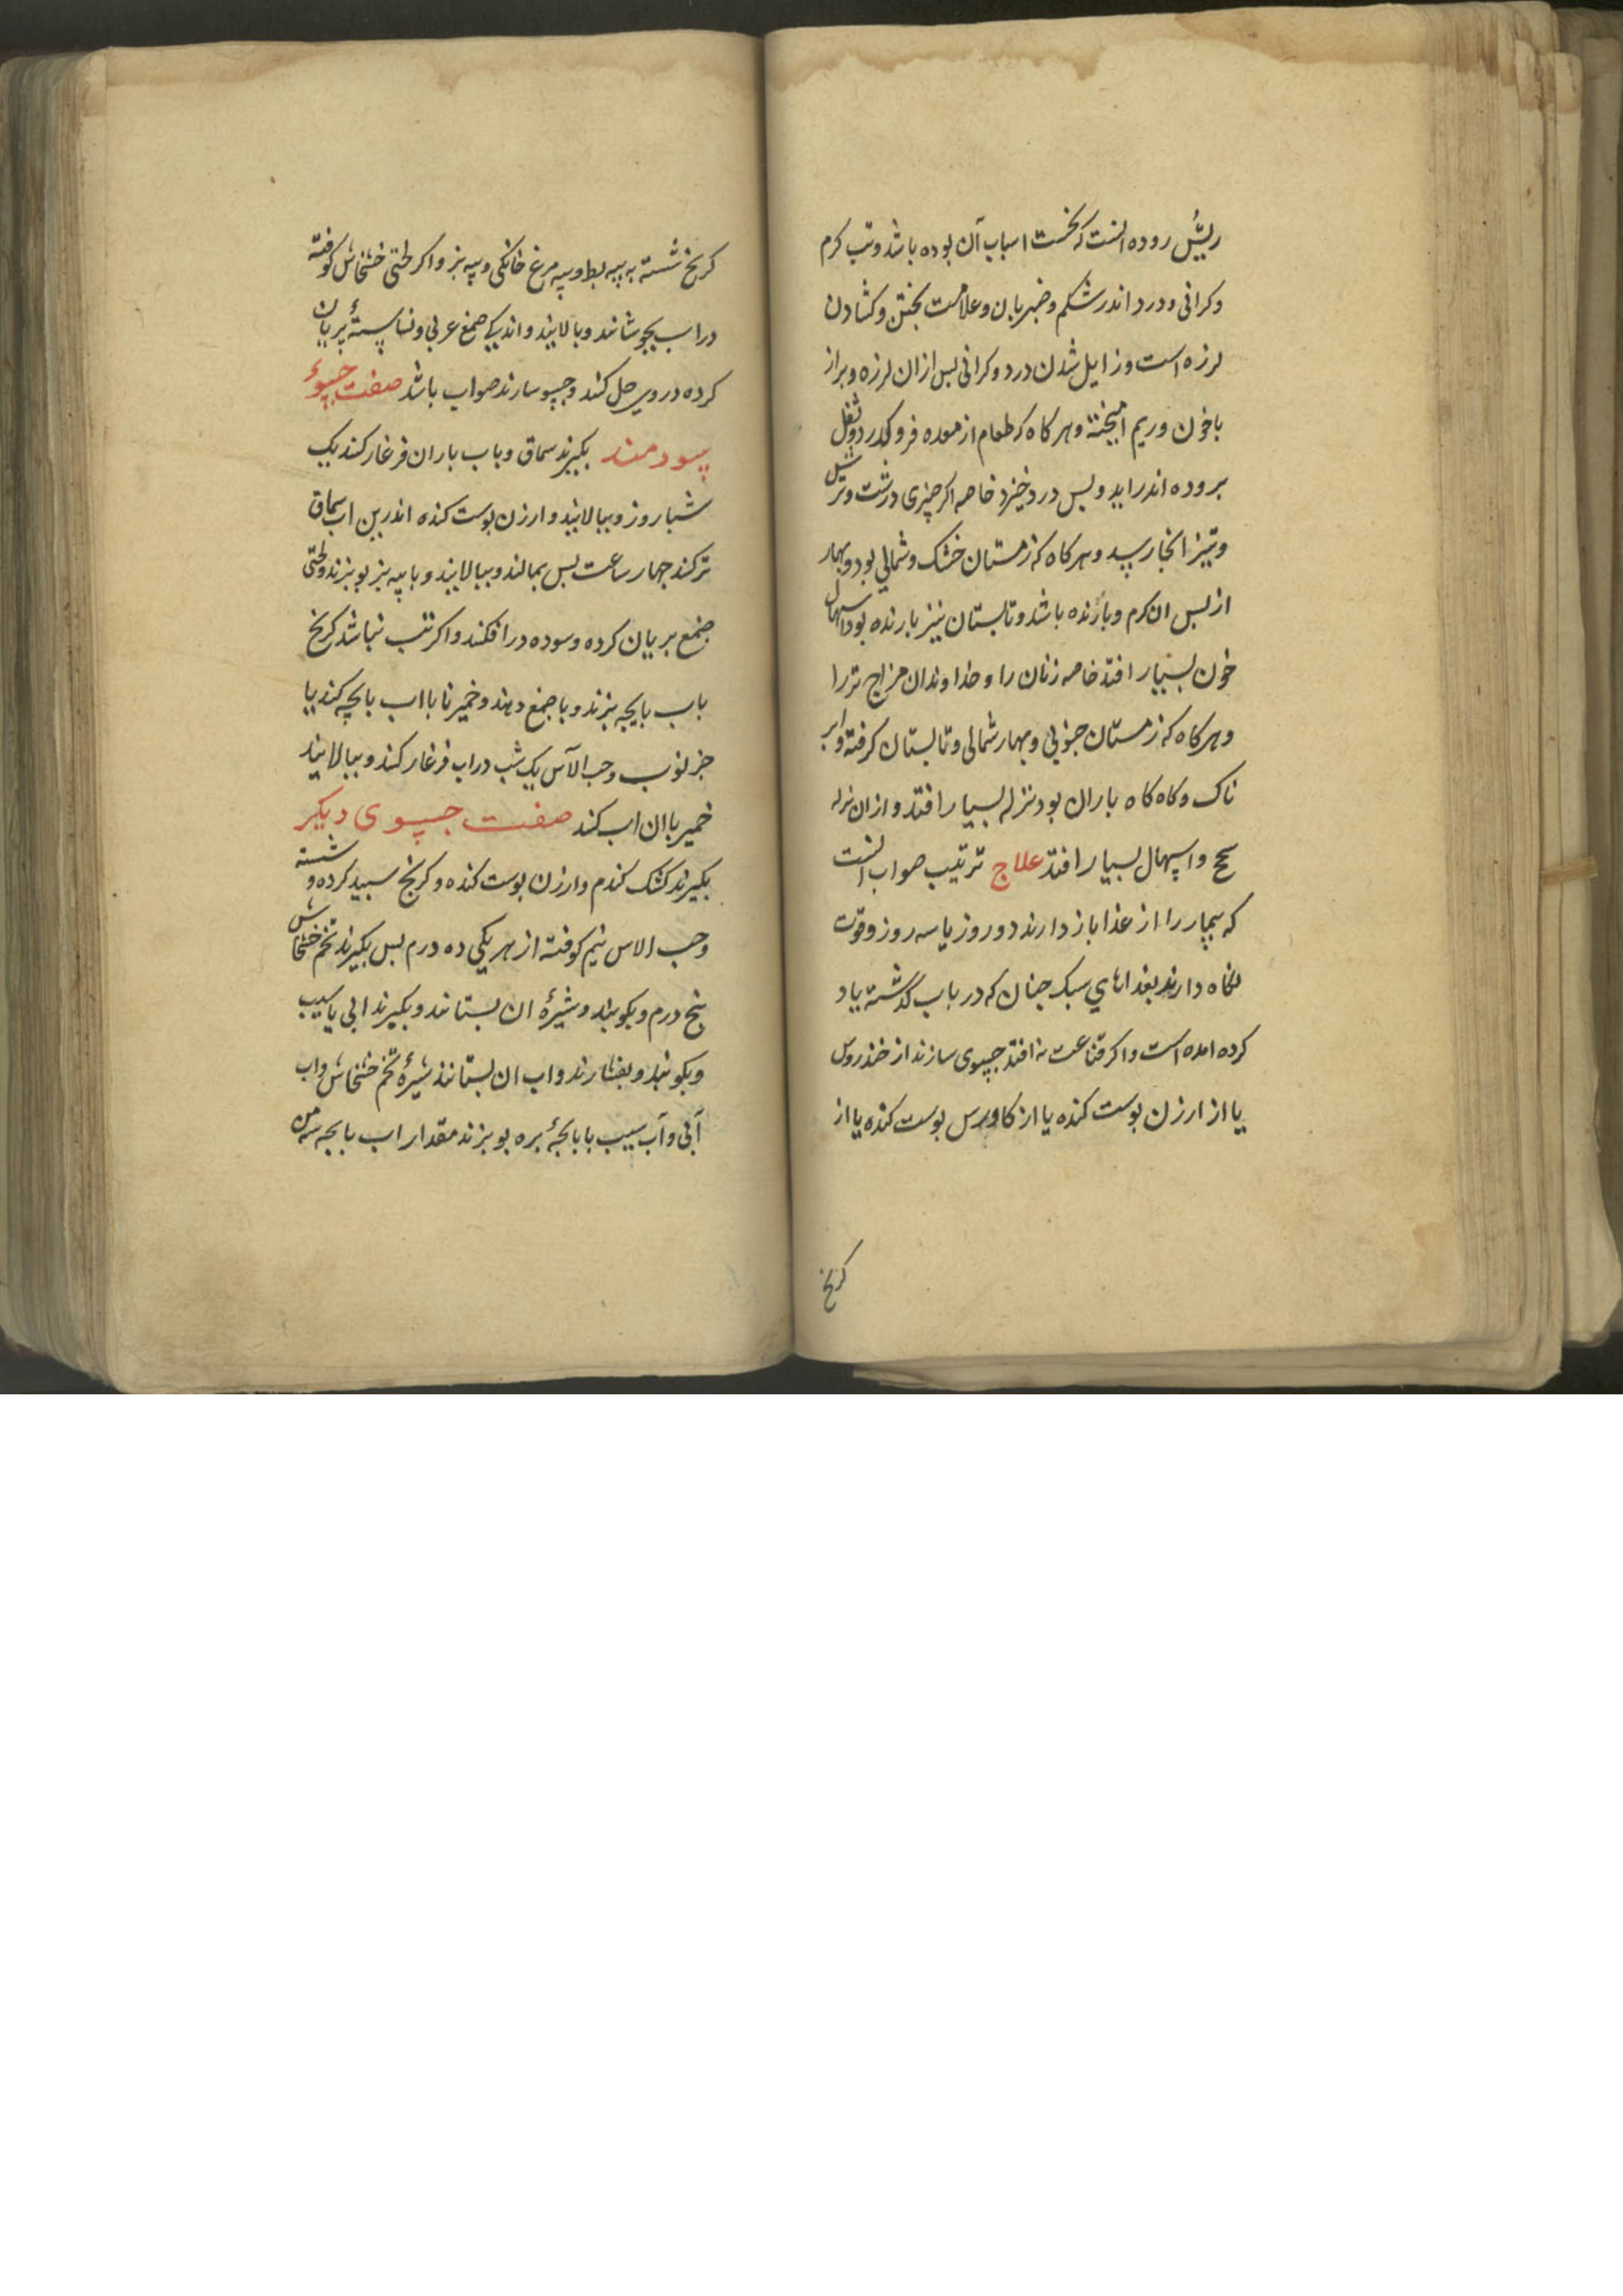 ریش روده انست که نخست اسباب آن بوده باشد و تب کرم
وکرانی و درد اندر شکم و ضربان و علامت بختن و کشادن
لرزه است و زایل شدن درد و کرانی بس ازان لرزه و براز
باخون و ریم امیخته و هر کاه که طعام از معده فرو کذرد و ثفل
بروده اندر اید و بس درد خیزد خاصه اکر چیزی درشت و ترش
و تیز انجا رسد و هر کاه که زمستان خشک و شمالی بود و بهار
از بس ان کرم و بارنده باشد و تابستان نیز بارنده بود اسهال
خون بسیار افتد خاصه زنان را و خداوندان مزاج تر را
و هر کاه که زمستان جنوبی و بهار شمالی و تابستان کرفته و ابر
ناک و کاه کاه باران بود نزله بسیار افتد و از ان نزله
سحج و اسهال بسیار افتد علاج ترتیب صواب انست
که بیمار را از غذا باز دارند دو روز یا سه روز و قوت
نکاه دارند بغذاهای سبک جنان که در باب کذشته یاد
کرده امده است و اکر قناعت نه افتد حسوی سازند از خندروس
یا از ارزن بوست کنده یا از کاورس بوست کنده یا از
کرنج
کرنج شسته به پیه بط و پیه مرغ خانکی و پیه بز و اکر لختی خشخاش کوفته
دراب بجوشانند و بالایند و اندکی صمغ عربی و نشاستهٔ بریان
کرده در وی حل کنند و حسو سازند صواب باشد صفت حسوء
سودمند بکیرند سماق و باب باران فرغار کنند یک
شبا روز و ببالایند و ارزن بوست کنده اندرین اب سماق
تر کنند جهار ساعت بس بمالند و ببالایند و با پیه بز بوبزند و لختی
صمغ بریان کرده و سوده در افکنند و اکر تب نباشد کرنج
باب بایجه بزند و با صمغ دهند و خمیر نان با اب بایجه کنند یا
خرنوب و حب الآس یک شب دراب فرغار کنند و ببالایند
خمیر باان اب کنند صفت حسوی دیکر
بکیرند کشک کندم و ارزن بوست کنده و کرنج سبید کرده و شسته
و حب الاس نیم کوفته از هر یکی ده درم بس بکیرند تخم خشخاش
بنج درم و بکوبند و شیرهٔ ان بستانند و بکیرند ابی یا سیب
و بکوبند و بفشارند و اب ان بستانند شیرهٔ تخم خشخاش و اب
آبی و آب سیب با بایجهٔ بره بوبزند مقدار اب بایجه سه من